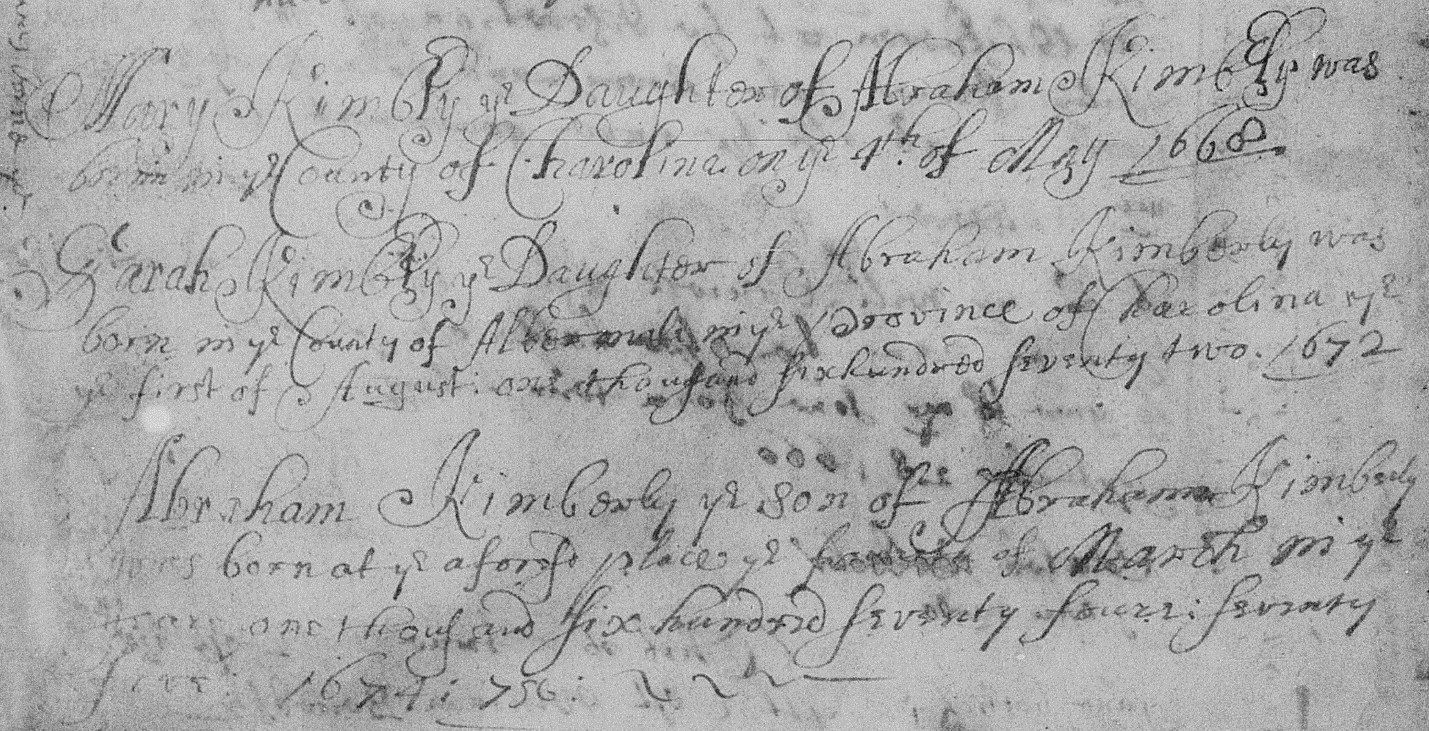 Mary Kimbly ye Daughter of Abraham Kimbly was
born in ye County of Charolina on ye 4th of May 1668.
Sarah Kimbly ye Daughter of Abraham Kimberly was
born in ye County of Albermale in ye Province of Charolina ye
ye first of August: one thousand six hundred seventy two. 1672
Abraham Kimberly ye Son of Abraham Kimberly
was born at ye aforesd place ye of March in ye
yeare one thousand six hundred seventy foure: seventy
five: 1674: